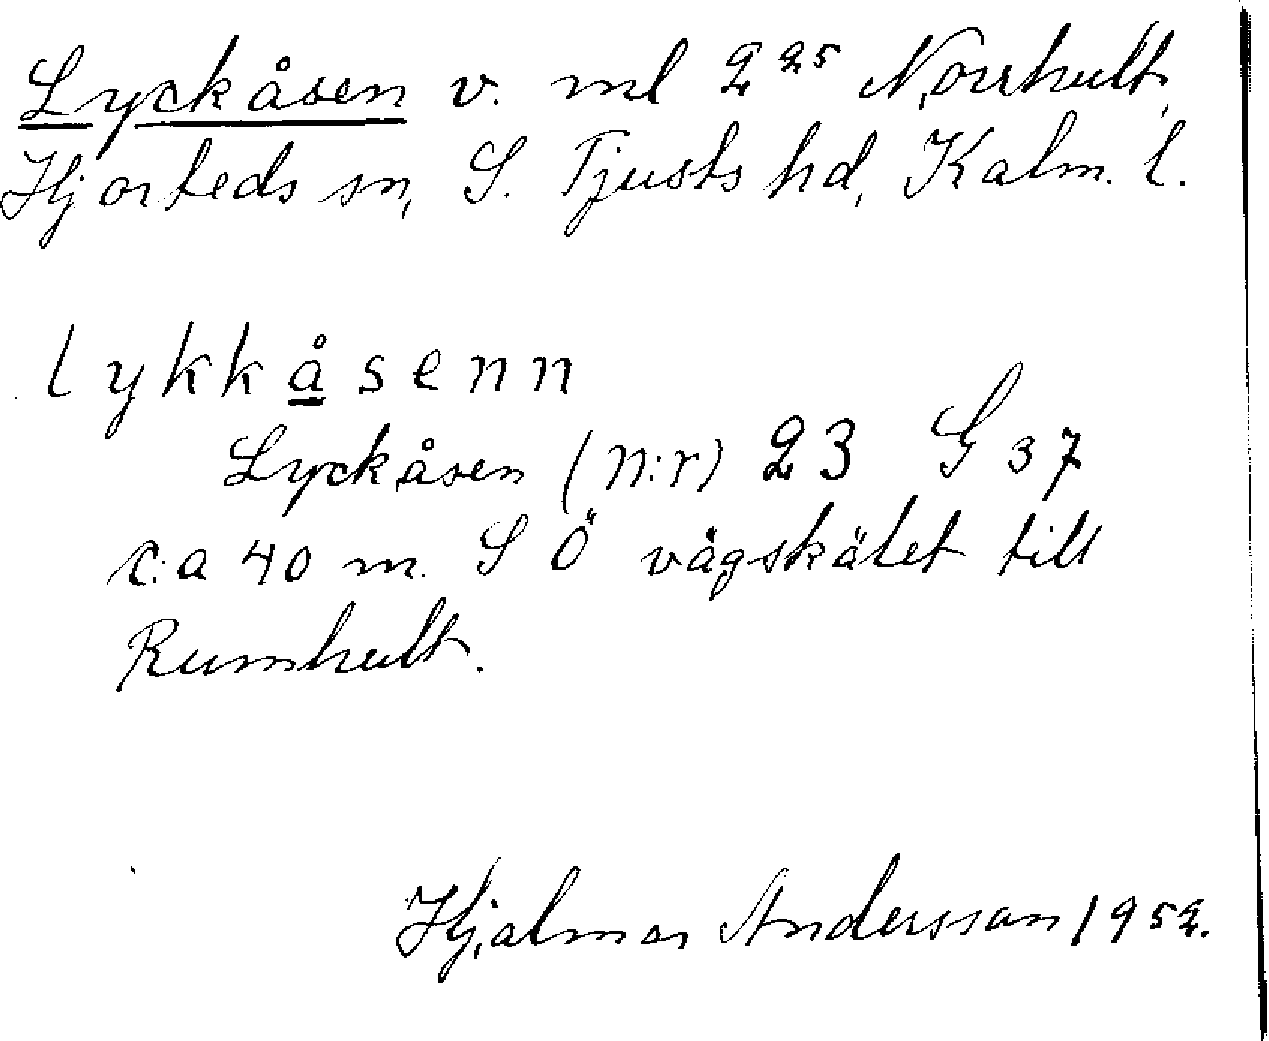 Lyckåsen v. ml 2 25 Norrhult,
Hjorteds sn, S. Tjusts hd, Kalm. l.
lykkåsenn
Lyckåsen (n:r) 23 G 37
c:a 40 m. S Ö vägskälet till
Rumhult.
Hjalmar Andersson 1952.